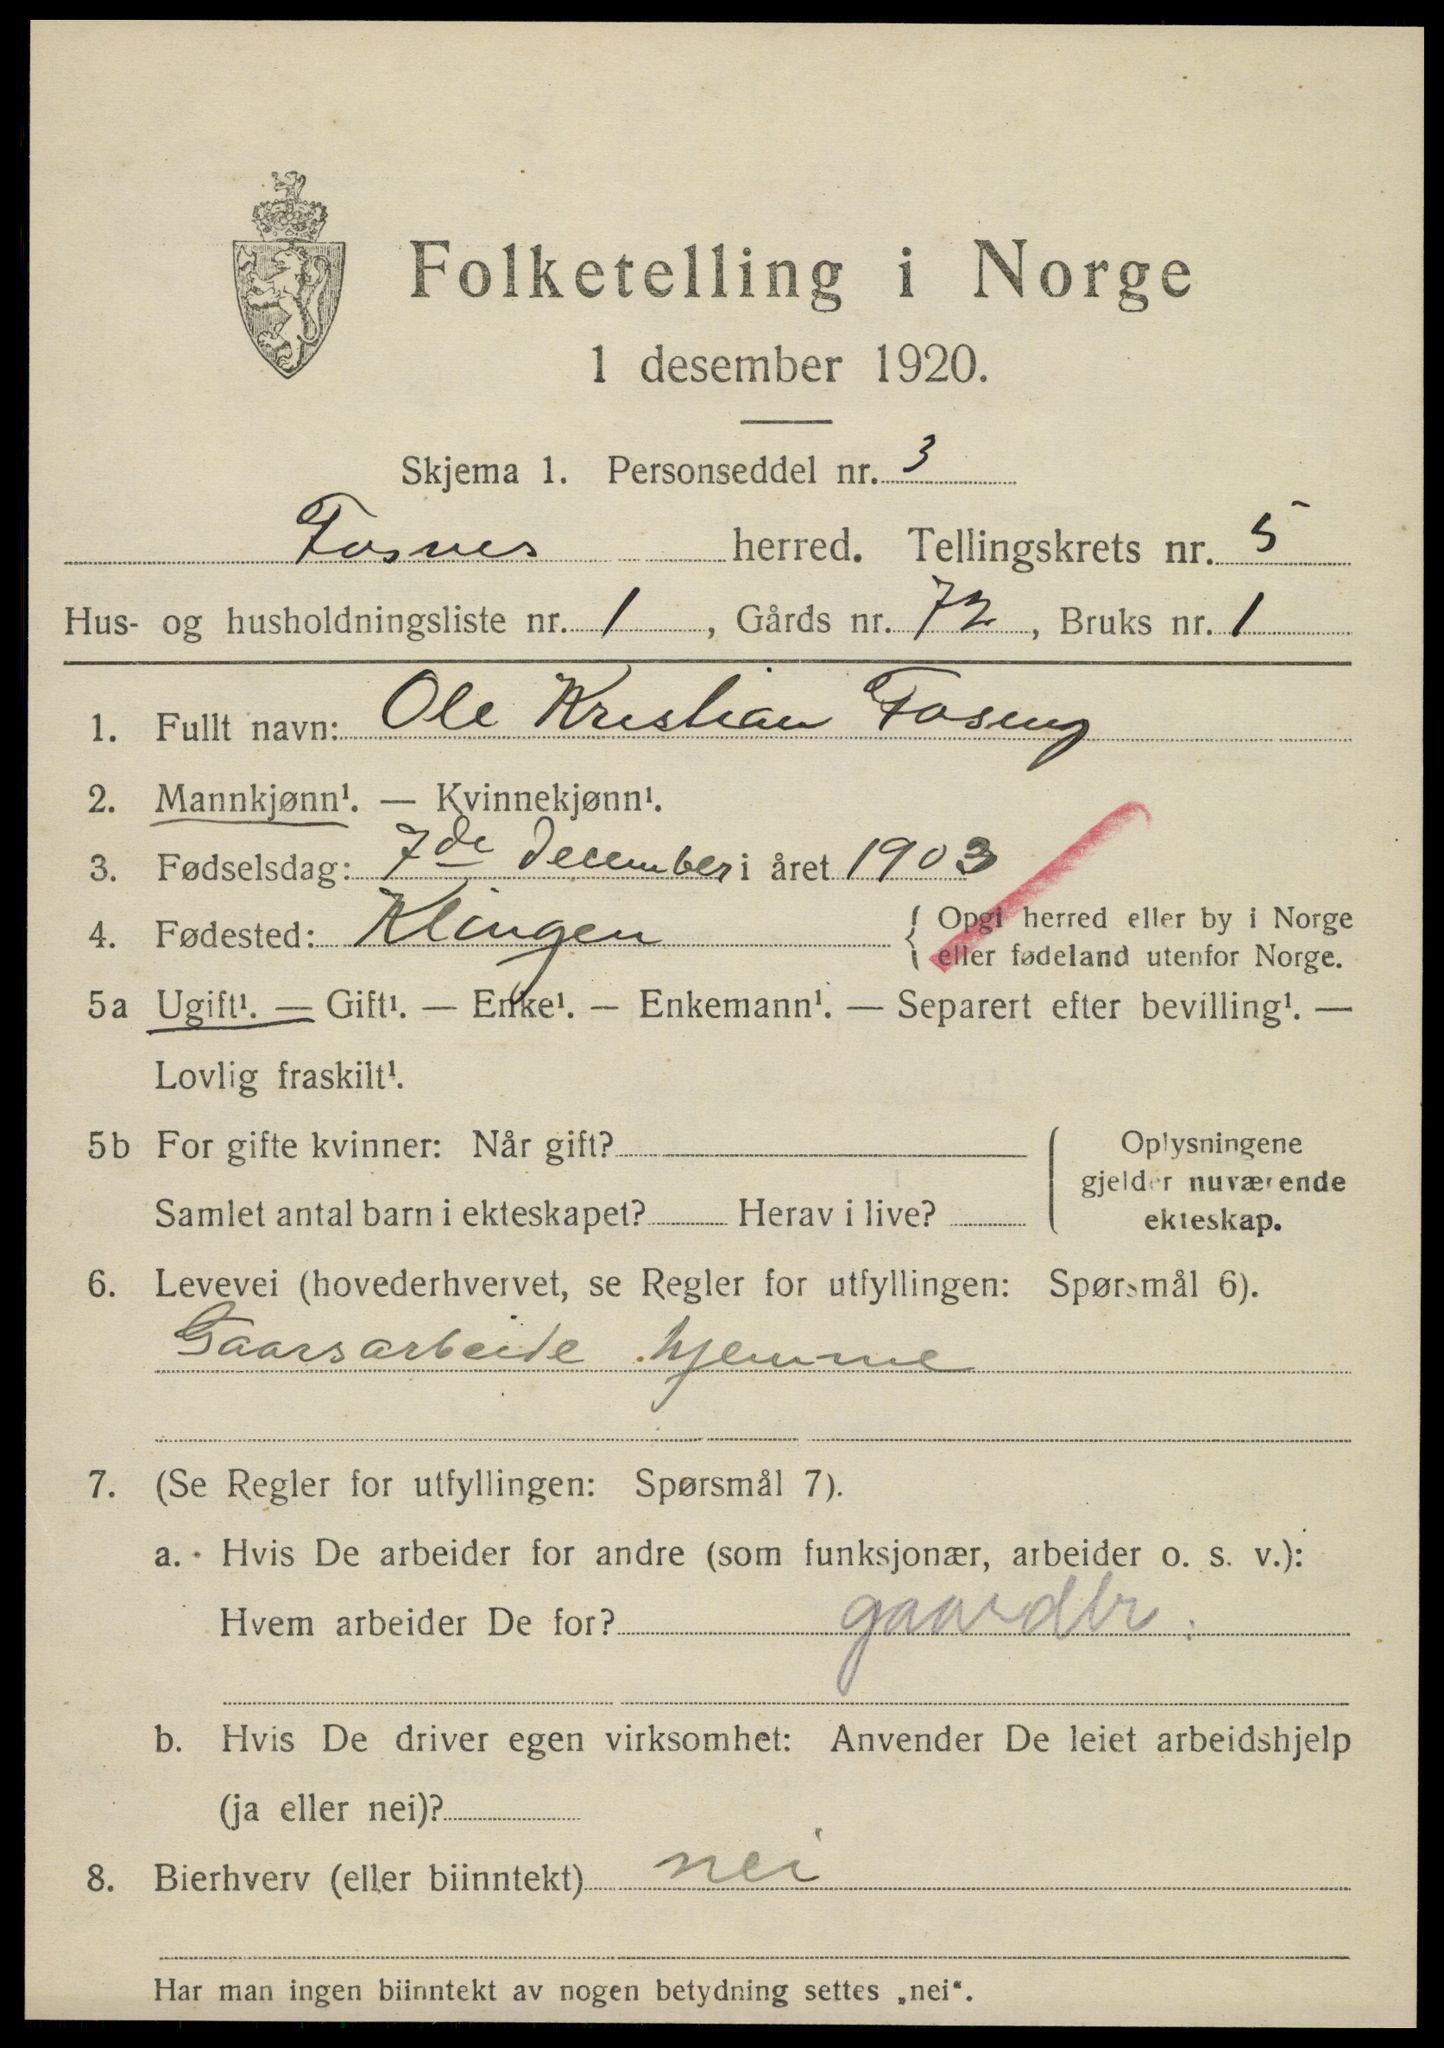 Folketelling i Norge
1 desember 1920.
Skjema 1. Personseddel nr. 3
Fosnes herred. Tellingskrets nr. 5
Hus- og husholdningsliste nr. 1, Gårds nr. 72, Bruks nr. 1
1. Fullt navn: Ole Kristian Faseng
2. Mannkjønn¹. — Kvinnekjønn¹.
3. Fødselsdag: 7de December i året 1903
4. Fødested: Klingen { Opgi herred eller by i Norge
eller fødeland utenfor Norge.
5a Ugift¹. — Gift¹. — Enke¹. — Enkemann¹. — Separert efter bevilling¹. —
Lovlig fraskilt¹.
5b For gifte kvinner: Når gift? { Oplysningene
gjelder nuværende
Samlet antal barn i ekteskapet? Herav i live? ekteskap.
6. Levevei (hovederhvervet, se Regler for utfyllingen: Spørsmål 6).
Gaarsarbeide hjemme
7. (Se Regler for utfyllingen: Spørsmål 7).
a. Hvis De arbeider for andre (som funksjonær, arbeider o. s. v.):
Hvem arbeider De for? gaardbr.
b. Hvis De driver egen virksomhet: Anvender De leiet arbeidshjelp
(ja eller nei)?
8. Bierhverv (eller biinntekt) nei
Har man ingen biinntekt av nogen betydning settes „nei“.